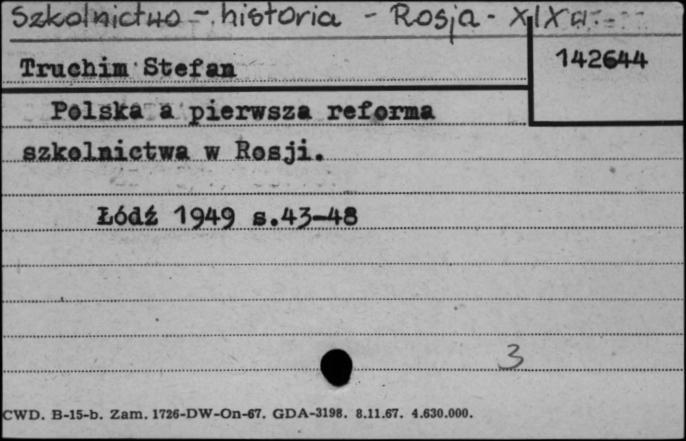 Szkolnictwo - historia - Rosja - XIX w.
Truchim Stefan
142644
Polska a pierwsza reforma
szkolnictwa w Rosji.
Łódź 1949 s.43-48
3
CWD. B-15-b. Zam. 1726-DW-On-67. GDA-3198. 8.11.67. 4.630.000.